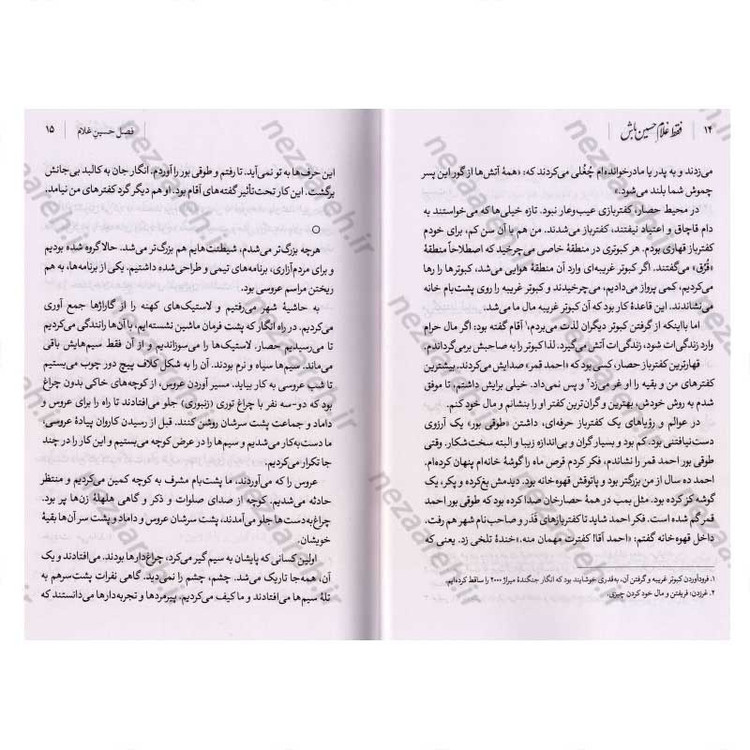 ۱۴ | فقط غلام حسین باش
می‌زدند و به پدر یا مادرخوانده‌ام چُغُلی می‌کردند که: «همهٔ آتش‌ها از گور این پسر
چموش شما بلند می‌شود.»
در محیط حصار، کفتربازی عیب‌وعار نبود. تازه خیلی‌ها که می‌خواستند به
دام قاچاق و اعتیاد نیفتند، کفترباز می‌شدند. من هم با آن سن کم، برای خودم
کفترباز قهاری بودم. هر کبوتری در منطقهٔ خاصی می‌چرخید که اصطلاحاً منطقهٔ
«قُرُق» می‌گفتند. اگر کبوتر غریبه‌ای وارد آن منطقهٔ هوایی می‌شد، کبوترها را رها
می‌کردیم، کمی پرواز می‌دادیم، می‌چرخیدند و کبوتر غریبه را روی پشت‌بام خانه
می‌نشاندند. این قاعدهٔ کار بود که آن کبوتر غریبه مال ما می‌شد.
اما بااینکه از گرفتن کبوتر دیگران لذت می‌بردم۱ آقام گفته بود: اگر مال حرام
وارد زندگی‌ات شود، زندگی‌ات آتش می‌گیرد. لذا کبوتر را به صاحبش برمی‌گرداندم.
قهارترین کفترباز حصار، کسی بود که «احمد قمر» صدایش می‌کردند. بیشترین
کفترهای من و بقیه را او غر می‌زد۲ و پس نمی‌داد. خیلی برایش داشتم، تا موفق
شدم به روش خودش، بهترین و گران‌ترین کفتر او را بنشانم و مال خود کنم.
در عوالم و رؤیاهای یک کفترباز حرفه‌ای، داشتن «طوقی بور»، یک آرزوی
دست‌نیافتنی بود. کم بود و بسیار گران و بی‌اندازه زیبا و البته سخت‌شکار. وقتی
طوقی بور احمد قمر را نشاندم، فکر کردم قرص ماه را گوشهٔ خانه‌ام پنهان کرده‌ام.
احمد ده سال از من بزرگتر بود و پاتوقش قهوه‌خانه بود. دیدمش بغ‌کرده و پکر، یک
گوشه کز کرده بود. مثل بمب در همهٔ حصارخان صدا کرده بود که طوقی بور احمد
قمر گم شده است. فکر احمد شاید تا کفتربازهای قَدَر و صاحب‌نام شهر هم رفت.
داخل قهوه‌خانه گفتم: «احمد آقا! کفترت مهمان منه.» خندهٔ تلخی زد. یعنی که
۱. فرودآوردن کبوتر غریبه و گرفتن آن، به‌قدری خوشایند بود که انگار جنگندهٔ میراژ ۲۰۰۰ را ساقط کرده‌ایم.
۲. غرزدن: فریفتن و مال خود کردن چیزی.
فصل حسینِ غلام | ۱۵
این حرف‌ها به تو نمی‌آید. تا رفتم و طوقی بور را آوردم، انگار جان به کالبد بی‌جانش
برگشت. این کار تحت‌تأثیر گفته‌های آقام بود. او هم دیگر گرد کفترهای من نیامد.
هرچه بزرگ‌تر می‌شدم، شیطنت‌هایم هم بزرگ‌تر می‌شد. حالا گروه شده بودیم
و برای مردم‌آزاری، برنامه‌های تیمی و طراحی‌شده داشتیم. یکی از برنامه‌ها، به هم
ریختن مراسم عروسی بود.
به حاشیهٔ شهر می‌رفتیم و لاستیک‌های کهنه را از گاراژها جمع آوری
می‌کردیم. در راه انگار که پشت فرمان ماشین نشسته‌ایم، با آن‌ها رانندگی می‌کردیم
تا می‌رسیدیم حصار. لاستیک‌ها را می‌سوزاندیم و از آن فقط سیم‌هایش باقی
می‌ماند. سیم‌ها سیاه و نرم بودند. آن را به شکل کلاف پیچ دور چوب می‌بستیم
تا شب عروسی به کار بیاید. مسیر آوردن عروس، از کوچه‌های خاکی بدون چراغ
بود که دو-سه نفر با چراغ توری (زنبوری) جلو می‌افتادند تا راه را برای عروس و
داماد و جماعت پشت سرشان روشن کنند. قبل از رسیدن کاروان پیادهٔ عروسی،
ما دست‌به‌کار می‌شدیم و سیم‌ها را در عرض کوچه می‌بستیم و این کار را در چند
جا تکرار می‌کردیم.
عروس را که می‌آوردند، ما پشت‌بام مشرف به کوچه کمین می‌کردیم و منتظر
حادثه می‌شدیم. کوچه از صدای صلوات و ذکر و گاهی هلهلهٔ زن‌ها پر بود.
چراغ‌به‌دست‌ها جلو می‌آمدند، پشت سرشان عروس و داماد و پشت سر آن‌ها بقیهٔ
خویشان.
اولین کسانی که پایشان به سیم گیر می‌کرد، چراغ‌دارها بودند. می‌افتادند و یک
آن، همه‌جا تاریک می‌شد. چشم، چشم را نمی‌دید. گاهی نفرات پشت‌سرهم به
تلهٔ سیم‌ها می‌افتادند و ما کیف می‌کردیم. پیرمردها و تجربه‌دارها می‌دانستند که
nezaareh.ir